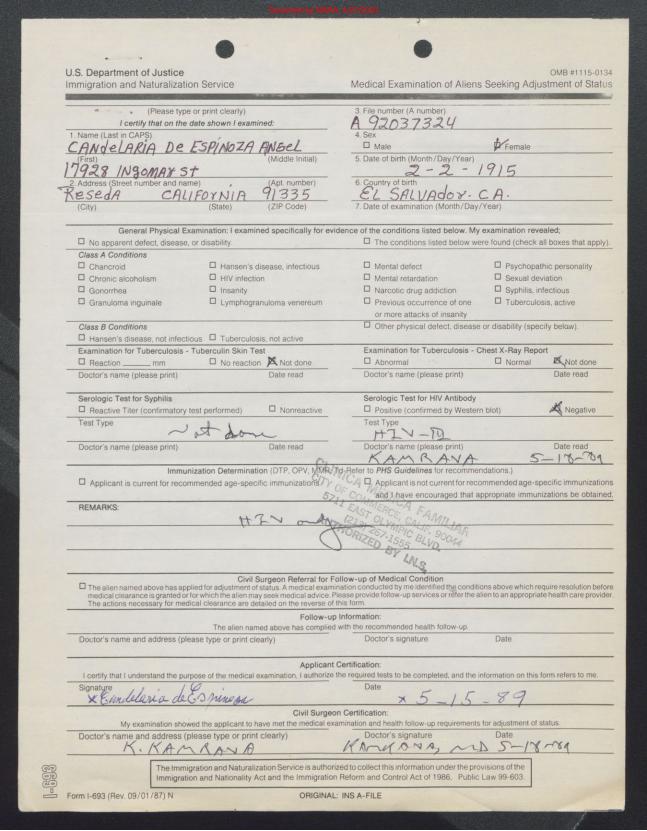 U.S. Department of Justice
Immigration and Naturalization Service
OMB #1115-0134
Medical Examination of Aliens Seeking Adjustment of Status
(Please type or print clearly)
I certify that on the date shown I examined:
3. File number (A number)
A 92037324
1. Name (Last in CAPS)
CANdeLARIA De ESPINOZA ANGEL
(First) (Middle Initial)
4. Sex
☐ Male ☒ Female
17928 INgOMAY St
2. Address (Street number and name) (Apt. number)
5. Date of birth (Month/Day/Year)
2-2-1915
ReSedA CALIFOrNIA 91335
(City) (State) (ZIP Code)
6. Country of birth
EL SALVAdOr. C.A.
7. Date of examination (Month/Day/Year)
General Physical Examination: I examined specifically for evidence of the conditions listed below. My examination revealed;
☐ No apparent defect, disease, or disability. ☐ The conditions listed below were found (check all boxes that apply).
Class A Conditions
☐ Chancroid ☐ Hansen's disease, infectious ☐ Mental defect ☐ Psychopathic personality
☐ Chronic alcoholism ☐ HIV infection ☐ Mental retardation ☐ Sexual deviation
☐ Gonorrhea ☐ Insanity ☐ Narcotic drug addiction ☐ Syphilis, infectious
☐ Granuloma inguinale ☐ Lymphogranuloma venereum ☐ Previous occurrence of one ☐ Tuberculosis, active
or more attacks of insanity
Class B Conditions
☐ Other physical defect, disease or disability (specify below).
☐ Hansen's disease, not infectious ☐ Tuberculosis, not active
Examination for Tuberculosis - Tuberculin Skin Test
☐ Reaction ____ mm ☐ No reaction ☒ Not done
Doctor's name (please print) Date read
Examination for Tuberculosis - Chest X-Ray Report
☐ Abnormal ☐ Normal ☒ Not done
Doctor's name (please print) Date read
Serologic Test for Syphilis
☐ Reactive Titer (confirmatory test performed) ☐ Nonreactive
Test Type
Not done
Doctor's name (please print) Date read
Serologic Test for HIV Antibody
☐ Positive (confirmed by Western blot) ☒ Negative
Test Type
HIV-
Doctor's name (please print) Date read
KAMRAVA 5-18-89
Immunization Determination (DTP, OPV, MMR, Td-Refer to PHS Guidelines for recommendations.)
☐ Applicant is current for recommended age-specific immunizations. ☐ Applicant is not current for recommended age-specific immunizations
and I have encouraged that appropriate immunizations be obtained.
REMARKS:
HIV only
CLINICA MEDICA FAMILIAR
CITY OF COMMERCE, CALIF. 90044
5711 EAST OLYMPIC BLVD.
(213) 267-1555
AUTHORIZED BY I.N.S.
Civil Surgeon Referral for Follow-up of Medical Condition
☐ The alien named above has applied for adjustment of status. A medical examination conducted by me identified the conditions above which require resolution before
medical clearance is granted or for which the alien may seek medical advice. Please provide follow-up services or refer the alien to an appropriate health care provider.
The actions necessary for medical clearance are detailed on the reverse of this form.
Follow-up Information:
The alien named above has complied with the recommended health follow-up.
Doctor's name and address (please type or print clearly) Doctor's signature Date
Applicant Certification:
I certify that I understand the purpose of the medical examination, I authorize the required tests to be completed, and the information on this form refers to me.
Signature Date
x Candelaria de Espinoza x 5-15-89
Civil Surgeon Certification:
My examination showed the applicant to have met the medical examination and health follow-up requirements for adjustment of status.
Doctor's name and address (please type or print clearly) Doctor's signature Date
K. KAMRAVA KAMRAVA, MD 5-18-89
The Immigration and Naturalization Service is authorized to collect this information under the provisions of the
Immigration and Nationality Act and the Immigration Reform and Control Act of 1986. Public Law 99-603.
I-693
Form I-693 (Rev. 09/01/87) N
ORIGINAL: INS A-FILE